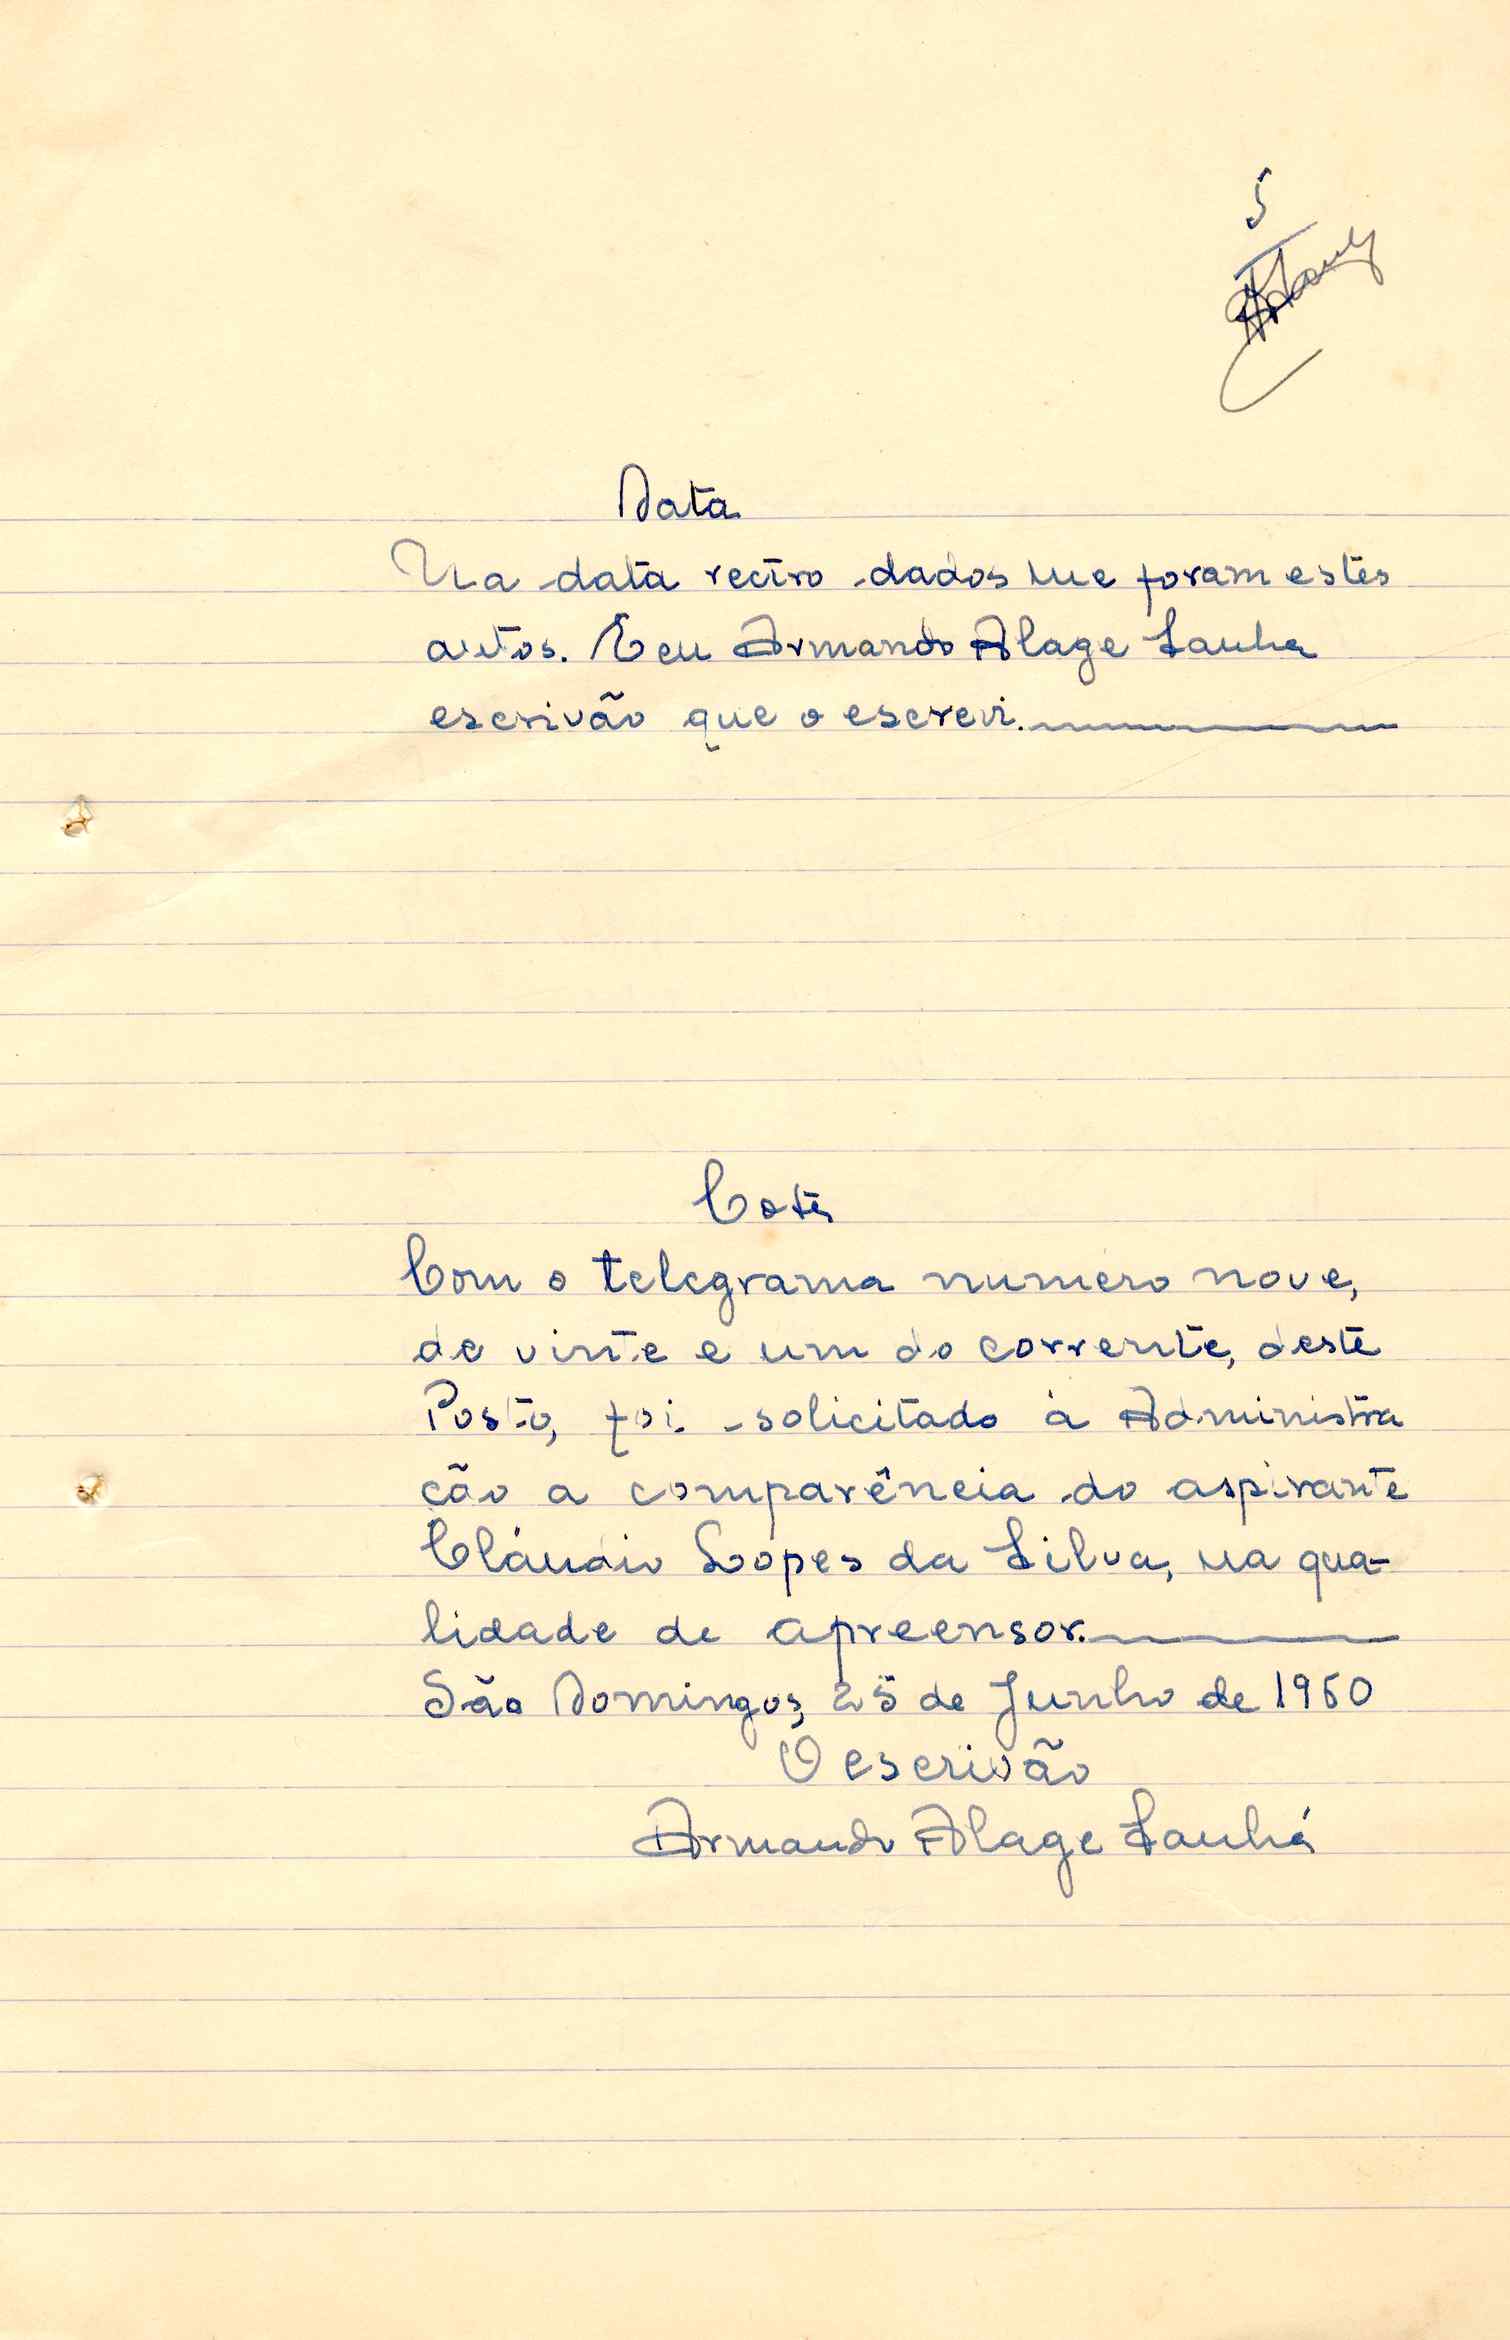 5
Data
Na data rectro dados me foram estes
autos. Eu Armando Alage Sanhá
escrivão que o escrevi.
Cota
Com o telegrama numero nove,
de vinte e um do corrente, deste
Posto, foi solicitado à Administra
ção a comparência do aspirante
Cláudio Lopes da Silva, na qua-
lidade de apreensor.
São Domingos, 25 de Junho de 1960
O escrivão
Armando Alage Sanhá